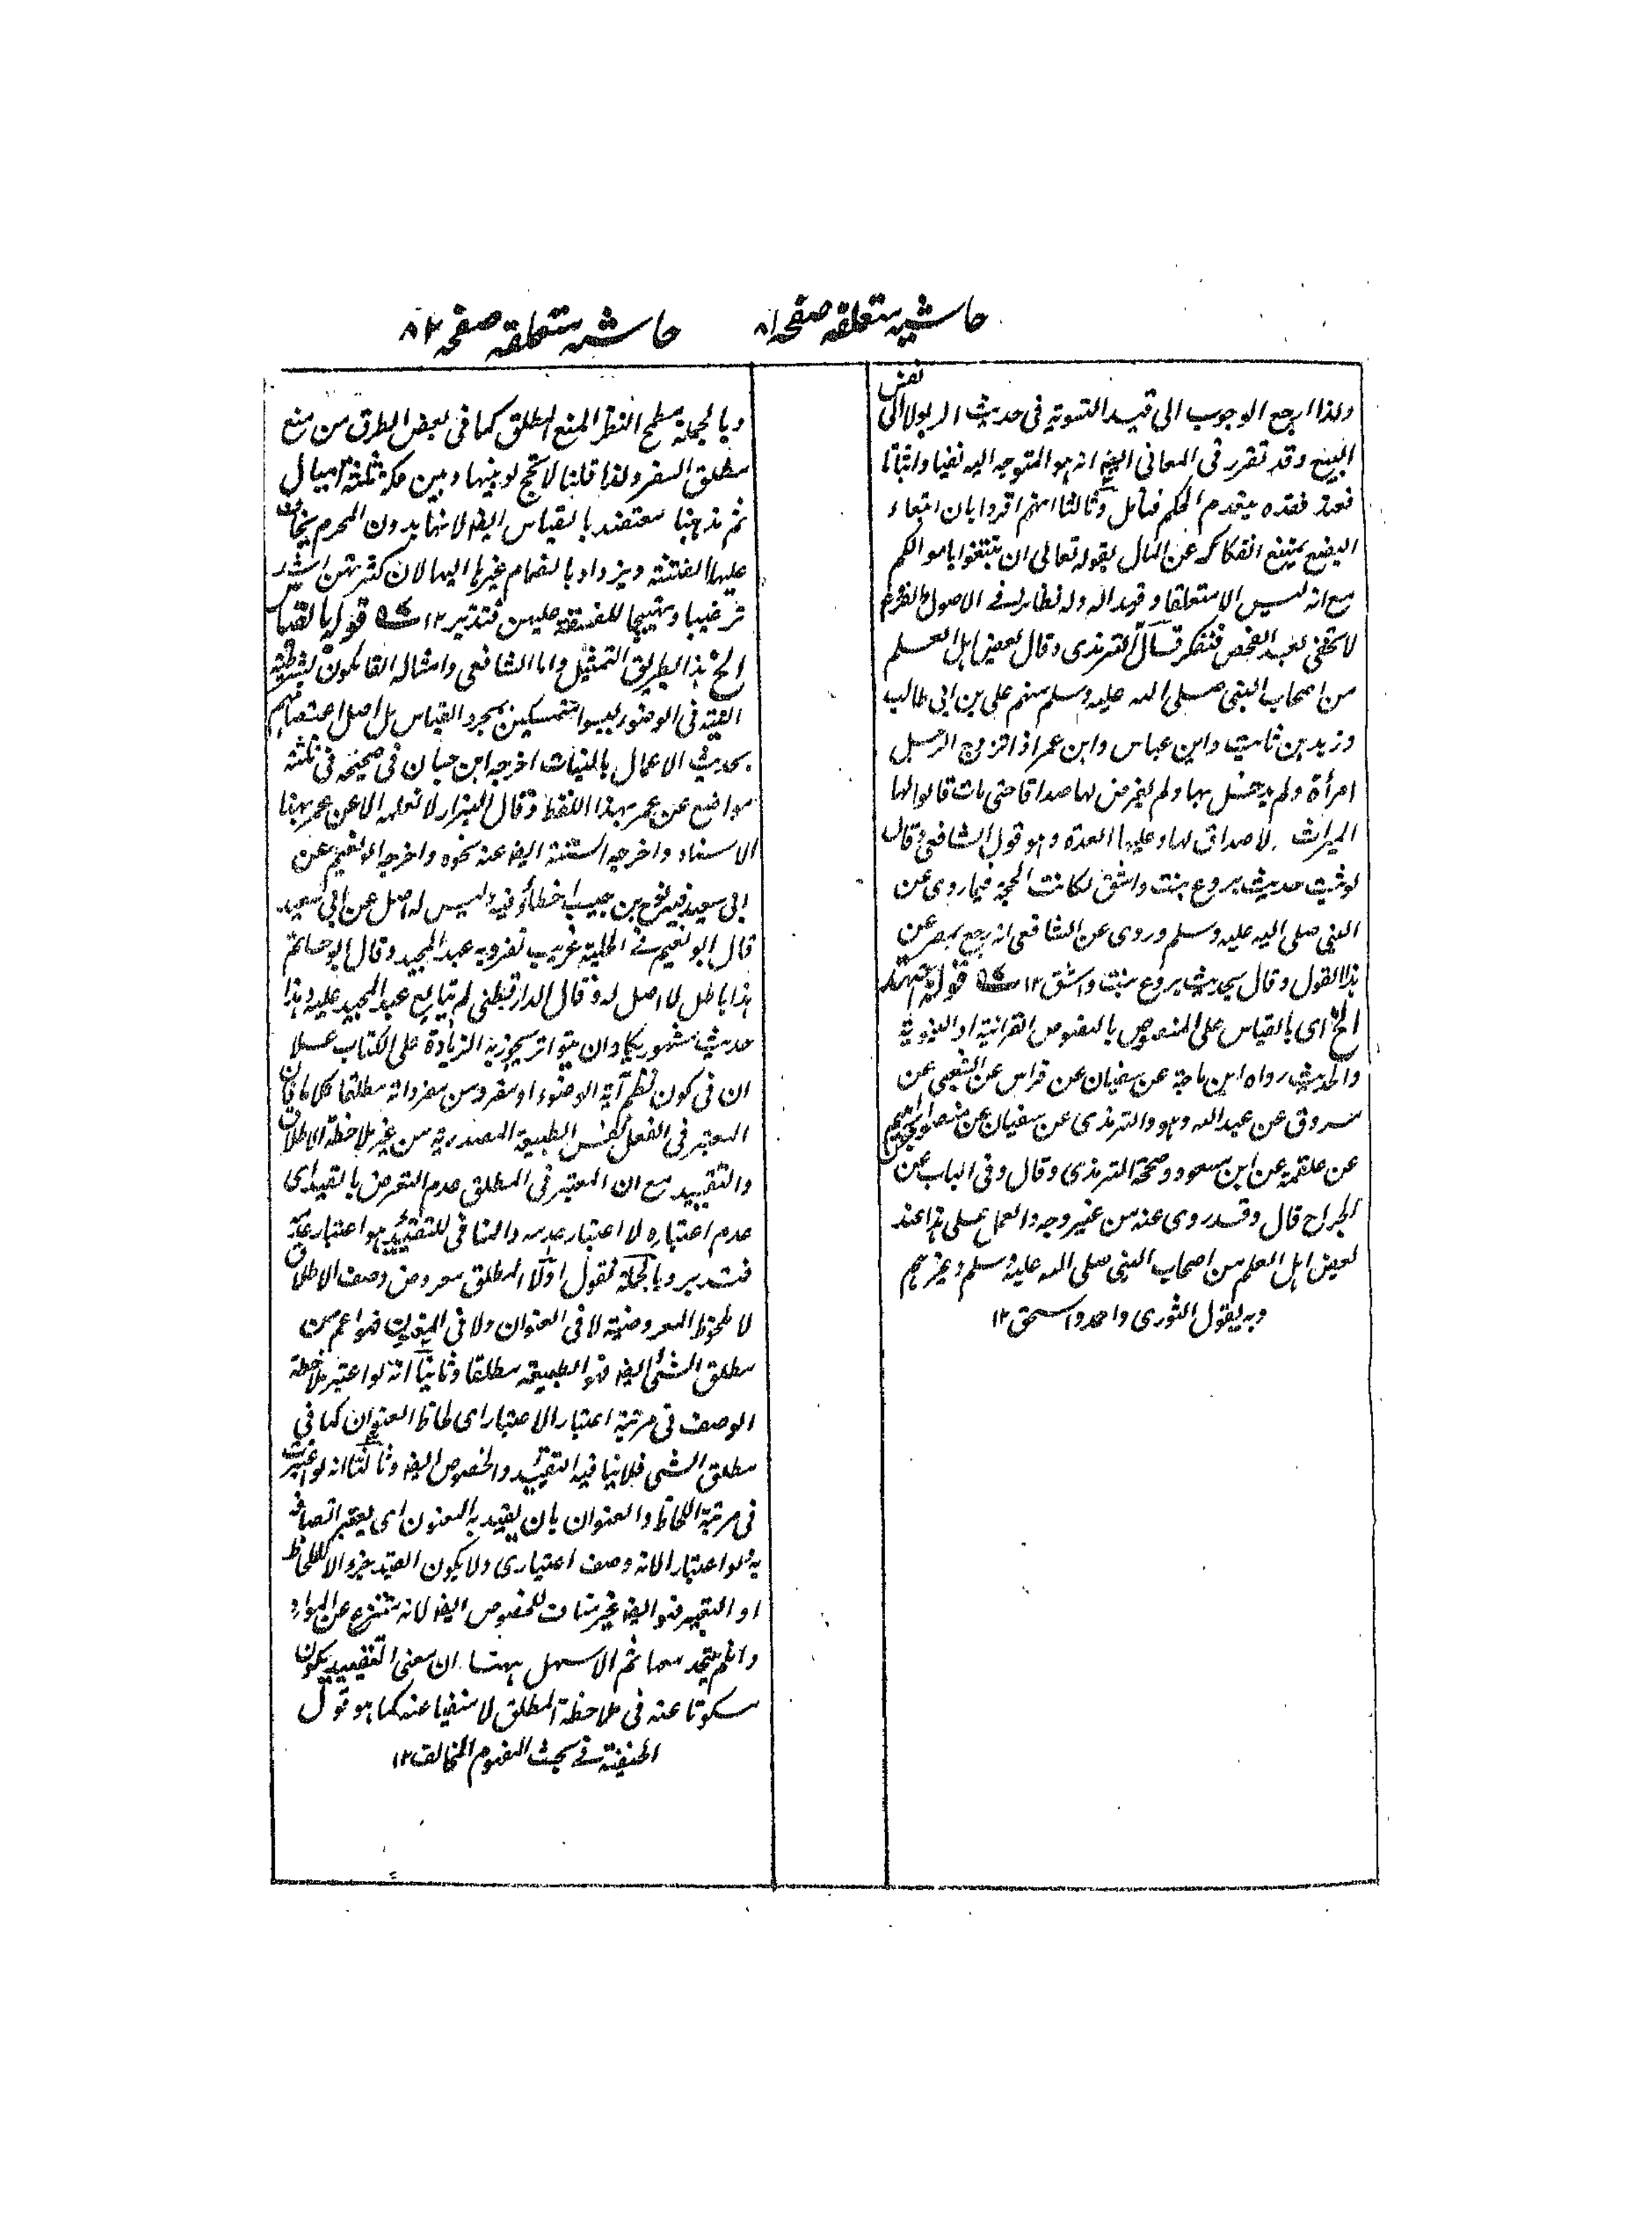 حاشیہ متعلقہ صفحہ ۸۱
ولذا ارجع الوجوب الى قيد التسوية فى حديث الربوا لا الى نفس
البيع وقد تقرر فى المعانى ايضا انه هو المتوجه اليه نفيا واثباتا
فعند فقده ينعدم الحكم فتأمل وثالثا انهم اقروا بان ابتغاء
البضع يمتنع انفكاكه عن المال بقوله تعالى ان تبتغوا باموالكم
مع انه ليس الا متعلقا وقيدا له وله نظائر فى الاصول والفروع
لا تخفى بعد الفحص فتفكر قال الترمذى وقال بعض اهل العلم
من اصحاب النبى صلى الله عليه وسلم منهم على بن ابى طالب
وزيد بن ثابت وابن عباس وابن عمر اذا تزوج الرجل
امرأة ولم يدخل بها ولم يفرض لها صداقا حتى مات قالوا لها
الميراث لا صداق لها وعليها العدة وهو قول الشافعى وقال
لو ثبت حديث بروع بنت واشق لكانت الحجة فيما روى عن
النبى صلى الله عليه وسلم وروى عن الشافعى انه رجع بمصر عن
هذا القول وقال بحديث بروع بنت واشق ۱۲ قوله اجتهد
الخ اى بالقياس على المنصوص بالنصوص القرآنية او النبوية
والحديث رواه ابن ماجة عن سفيان عن فراس عن الشعبى عن
مسروق عن عبد الله وهو والترمذى عن سفيان عن منصور عن ابراهيم
عن علقمة عن ابن مسعود وصححه الترمذى وقال وفى الباب عن
الجراح قال وقد روى عنه من غير وجه والعمل على هذا عند
بعض اهل العلم من اصحاب النبى صلى الله عليه وسلم وغيرهم
وبه يقول الثورى واحمد واسحق ۱۲
حاشیہ متعلقہ صفحہ ۸۲
وبالجملة مطمح النظر المنع المطلق كما فى بعض الطرق من منع
مطلق السفر ولذا قلنا لا تحج لو بينها وبين مكة ثلثة اميال
ثم مذهبنا معتضد بالقياس ايضا لانها بدون المحرم يخاف
عليها الفتنة ويزداد بانضمام غيرها اليها لان كثرتهن اشد
ترغيبا وتهييجا للفسقة عليهن فتدبر ۱۲ قوله بالقياس
الخ هذا بطريق التمثيل واما الشافعى وامثاله القائلون بشرطية
النية فى الوضوء ليسوا متمسكين بمجرد القياس بل اصل اعتصامهم
بحديث الاعمال بالنيات اخرجه ابن حبان فى صحيحه فى ثلثة
مواضع عن عمر بهذا اللفظ وقال البزار لا نعلمه الا عن عمر بهذا
الاسناد واخرجه الستة ايضا عنه نحوه واخرجه ابو نعيم عن
ابى سعيد فيه نوح بن حبيب اخطأ فيه وليس له اصل عن ابى سعيد
قال ابو نعيم فى الحلية غريب تفرد به عبد المجيد وقال ابو حاتم
هذا باطل لا اصل له وقال الدارقطنى لم يتابع عبد المجيد عليه وهذا
حديث مشهور يكاد ان يتواتر يجوز به الزيادة على الكتاب على
ان فى كون نظم آية الوضوء او مفرد من مفرداته مطلقا كلاما فان
المعتبر فى الفعل نفس الطبيعة المصدرية من غير ملاحظة الاطلاق
والتقييد مع ان المعتبر فى المطلق عدم التعرض بالقيد اى
عدم اعتباره لا اعتبار عدمه والنافى للتقييد هو اعتبار عدمه
فتدبر وبالجملة نقول اولا المطلق معروض وصف الاطلاق
لا ملحوظ المعروضية لا فى العنوان ولا فى المعنون فهو اعم من
مطلق الشئ ايضا فهو الطبيعة مطلقا وثانيا انه لو اعتبر ملاحظة
الوصف فى مرتبة اعتبار الاعتبار اى لحاظ العنوان كما فى
مطلق الشئ فلا ينافيه التقييد والخصوص ايضا وثالثا انه لو اعتبرت
فى مرتبة اللحاظ والعنوان بان يقيد به المعنون اى يعتبر اتصافه
به ولو اعتبارا لانه وصف اعتبارى ولا يكون القيد جزء الا للحاظ
او التعبير فهو ايضا غير مناف للخصوص ايضا لانه منتزع عن المواد
وان لم يتحد معها ثم الاسهل ههنا ان معنى التقييد يكون
سكوتا عنه فى ملاحظة المطلق لا منفيا عنه كما هو قول
الحنفية فى بحث المفهوم المخالف ۱۲